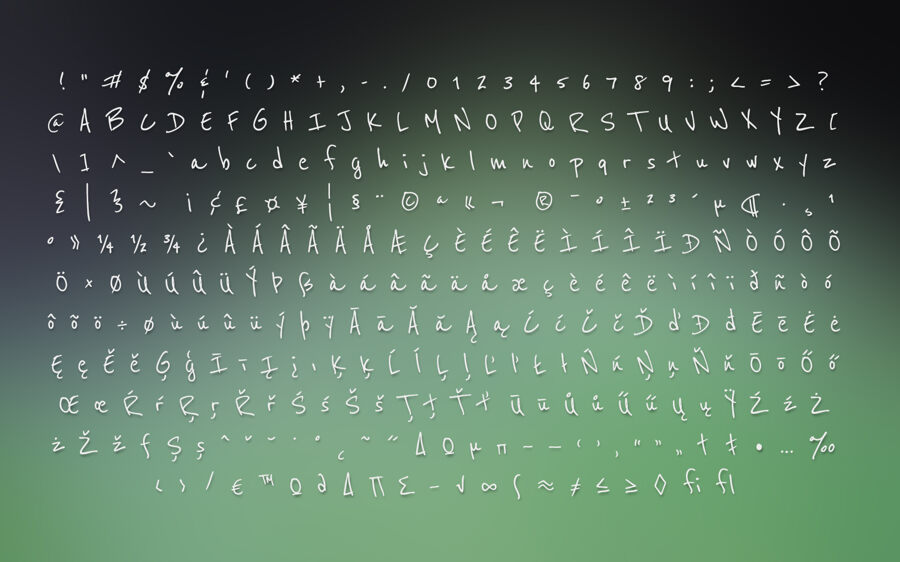 ! " # $ % & ' ( ) * + , - . / 0 1 2 3 4 5 6 7 8 9 : ; < = > ?
@ A B C D E F G H I J K L M N O P Q R S T U V W X Y Z [
\ ] ^ _ ` a b c d e f g h i j k l m n o p q r s t u v w x y z
{ | } ~ ¡ ¢ £ ¤ ¥ ¦ § ¨ © ª « ¬ ® ¯ ° ± ² ³ ´ µ ¶ · ¸ ¹
º » ¼ ½ ¾ ¿ À Á Â Ã Ä Å Æ Ç È É Ê Ë Ì Í Î Ï Ð Ñ Ò Ó Ô Õ
Ö × Ø Ù Ú Û Ü Ý Þ ß à á â ã ä å æ ç è é ê ë ì í î ï ð ñ ò ó
ô õ ö ÷ ø ù ú û ü ý þ ÿ Ā ā Ă ă Ą ą Ć ć Č č Ď ď Đ đ Ē ē Ė ė
Ę ę Ě ě Ģ ģ Ī ī Į į ı Ķ ķ Ĺ ĺ Ļ ļ Ľ ľ Ł ł Ń ń Ņ ņ Ň ň Ō ō Ő ő
Œ œ Ŕ ŕ Ŗ ŗ Ř ř Ś ś Š š Ţ ţ Ť ť Ū ū Ů ů Ű ű Ų ų Ÿ Ź ź Ż
ż Ž ž ƒ Ș ș ˆ ˇ ˘ ˙ ˚ ˛ ˜ ˝ Δ Ω μ π – — ‘ ’ ‚ “ ” „ † ‡ • … ‰
‹ › ⁄ € ™ Ω ∂ ∆ ∏ ∑ − √ ∞ ∫ ≈ ≠ ≤ ≥ ◊ fi fl